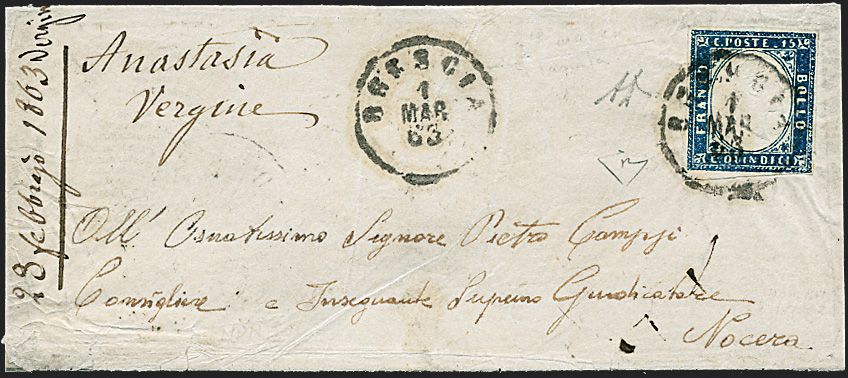 23 febbrajo 1863
Anastasia
Vergine
BRESCIA
1
MAR
63
C. POSTE. 15
FRANCO
BOLLO
C. QUINDICI
BRESCIA
1
MAR
63
All' Ornatissimo Signore Pietro
Consigliere e Insegnante Supremo Giudicatore
Nocera